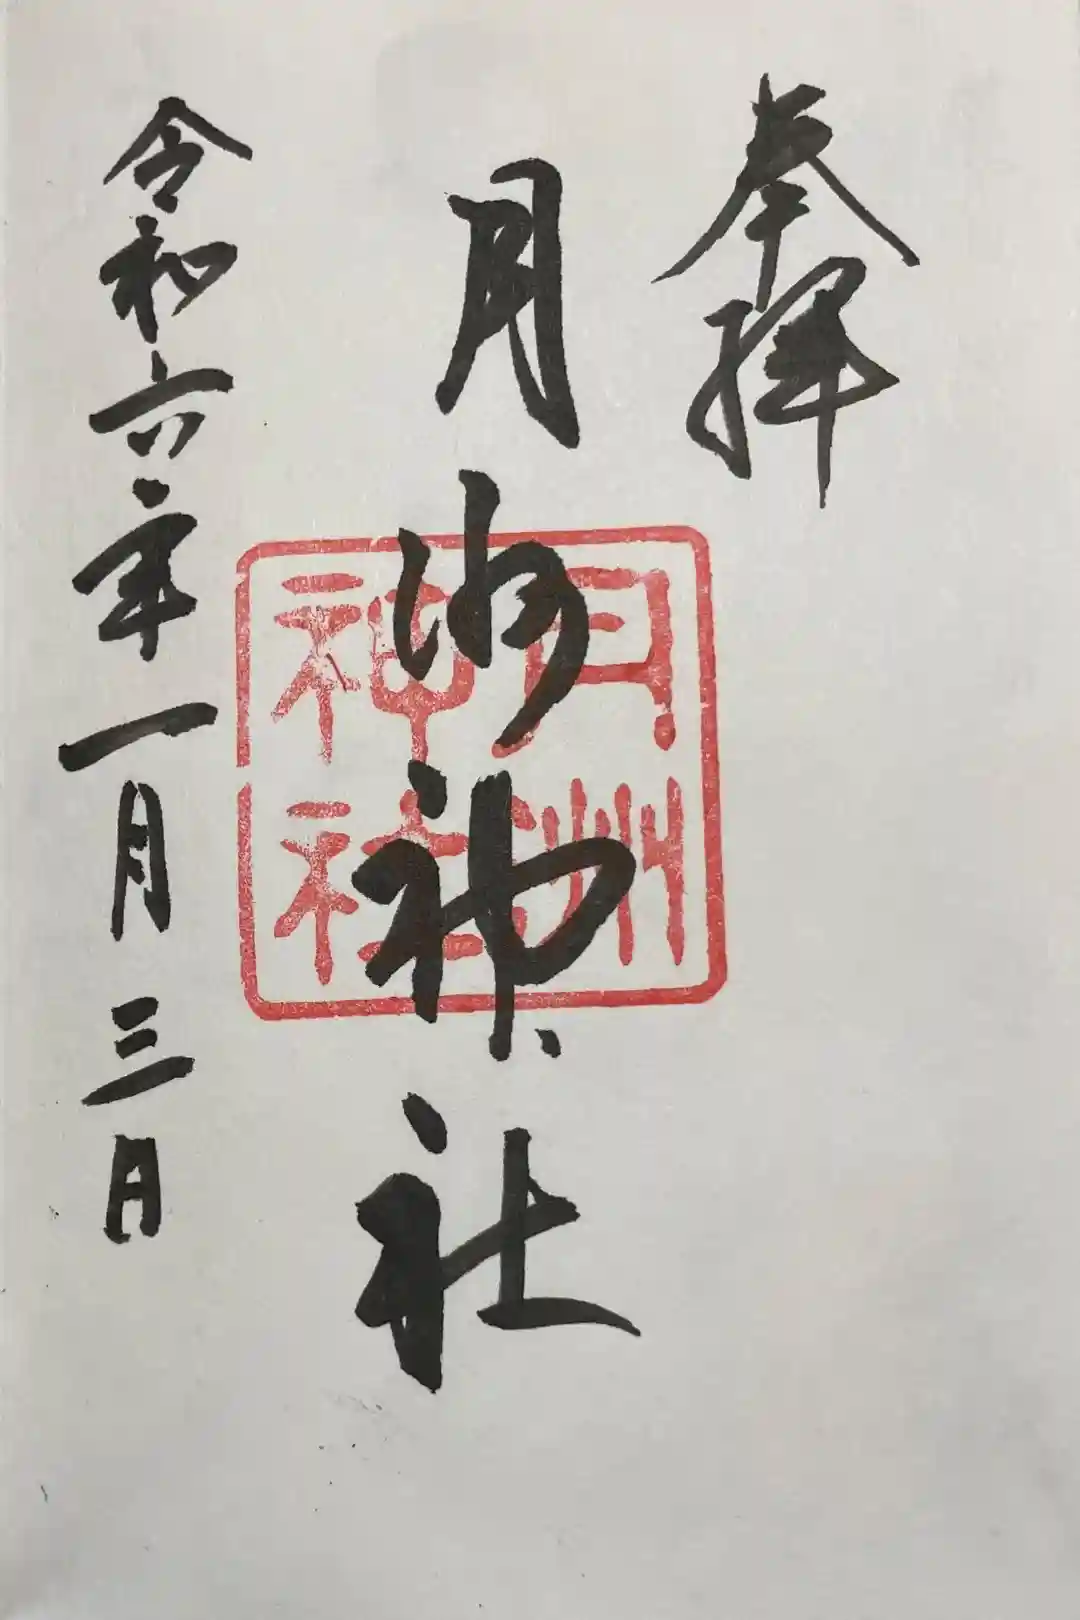 奉拝
月洲神社
月洲
神社
令和六年一月三日